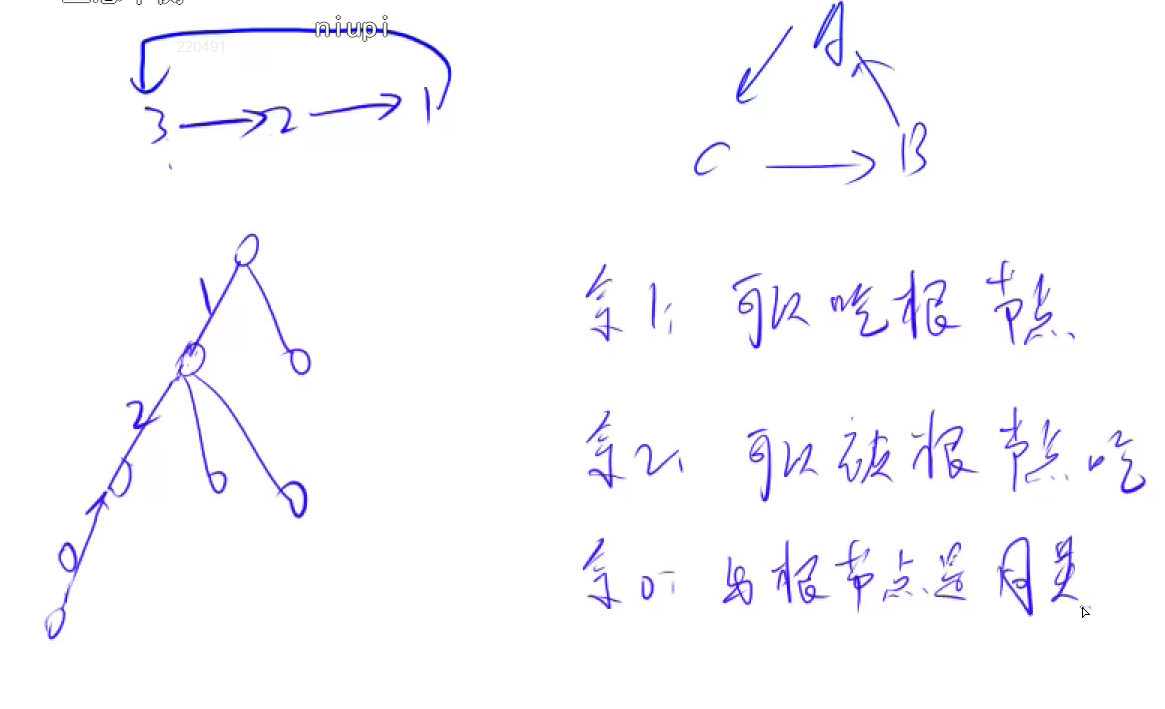 niupi
220491
3 → 2 → 1
A
C → B
1
2
0
余1: 可以吃根节点
余2: 可以被根节点吃
余0: 与根节点是同类